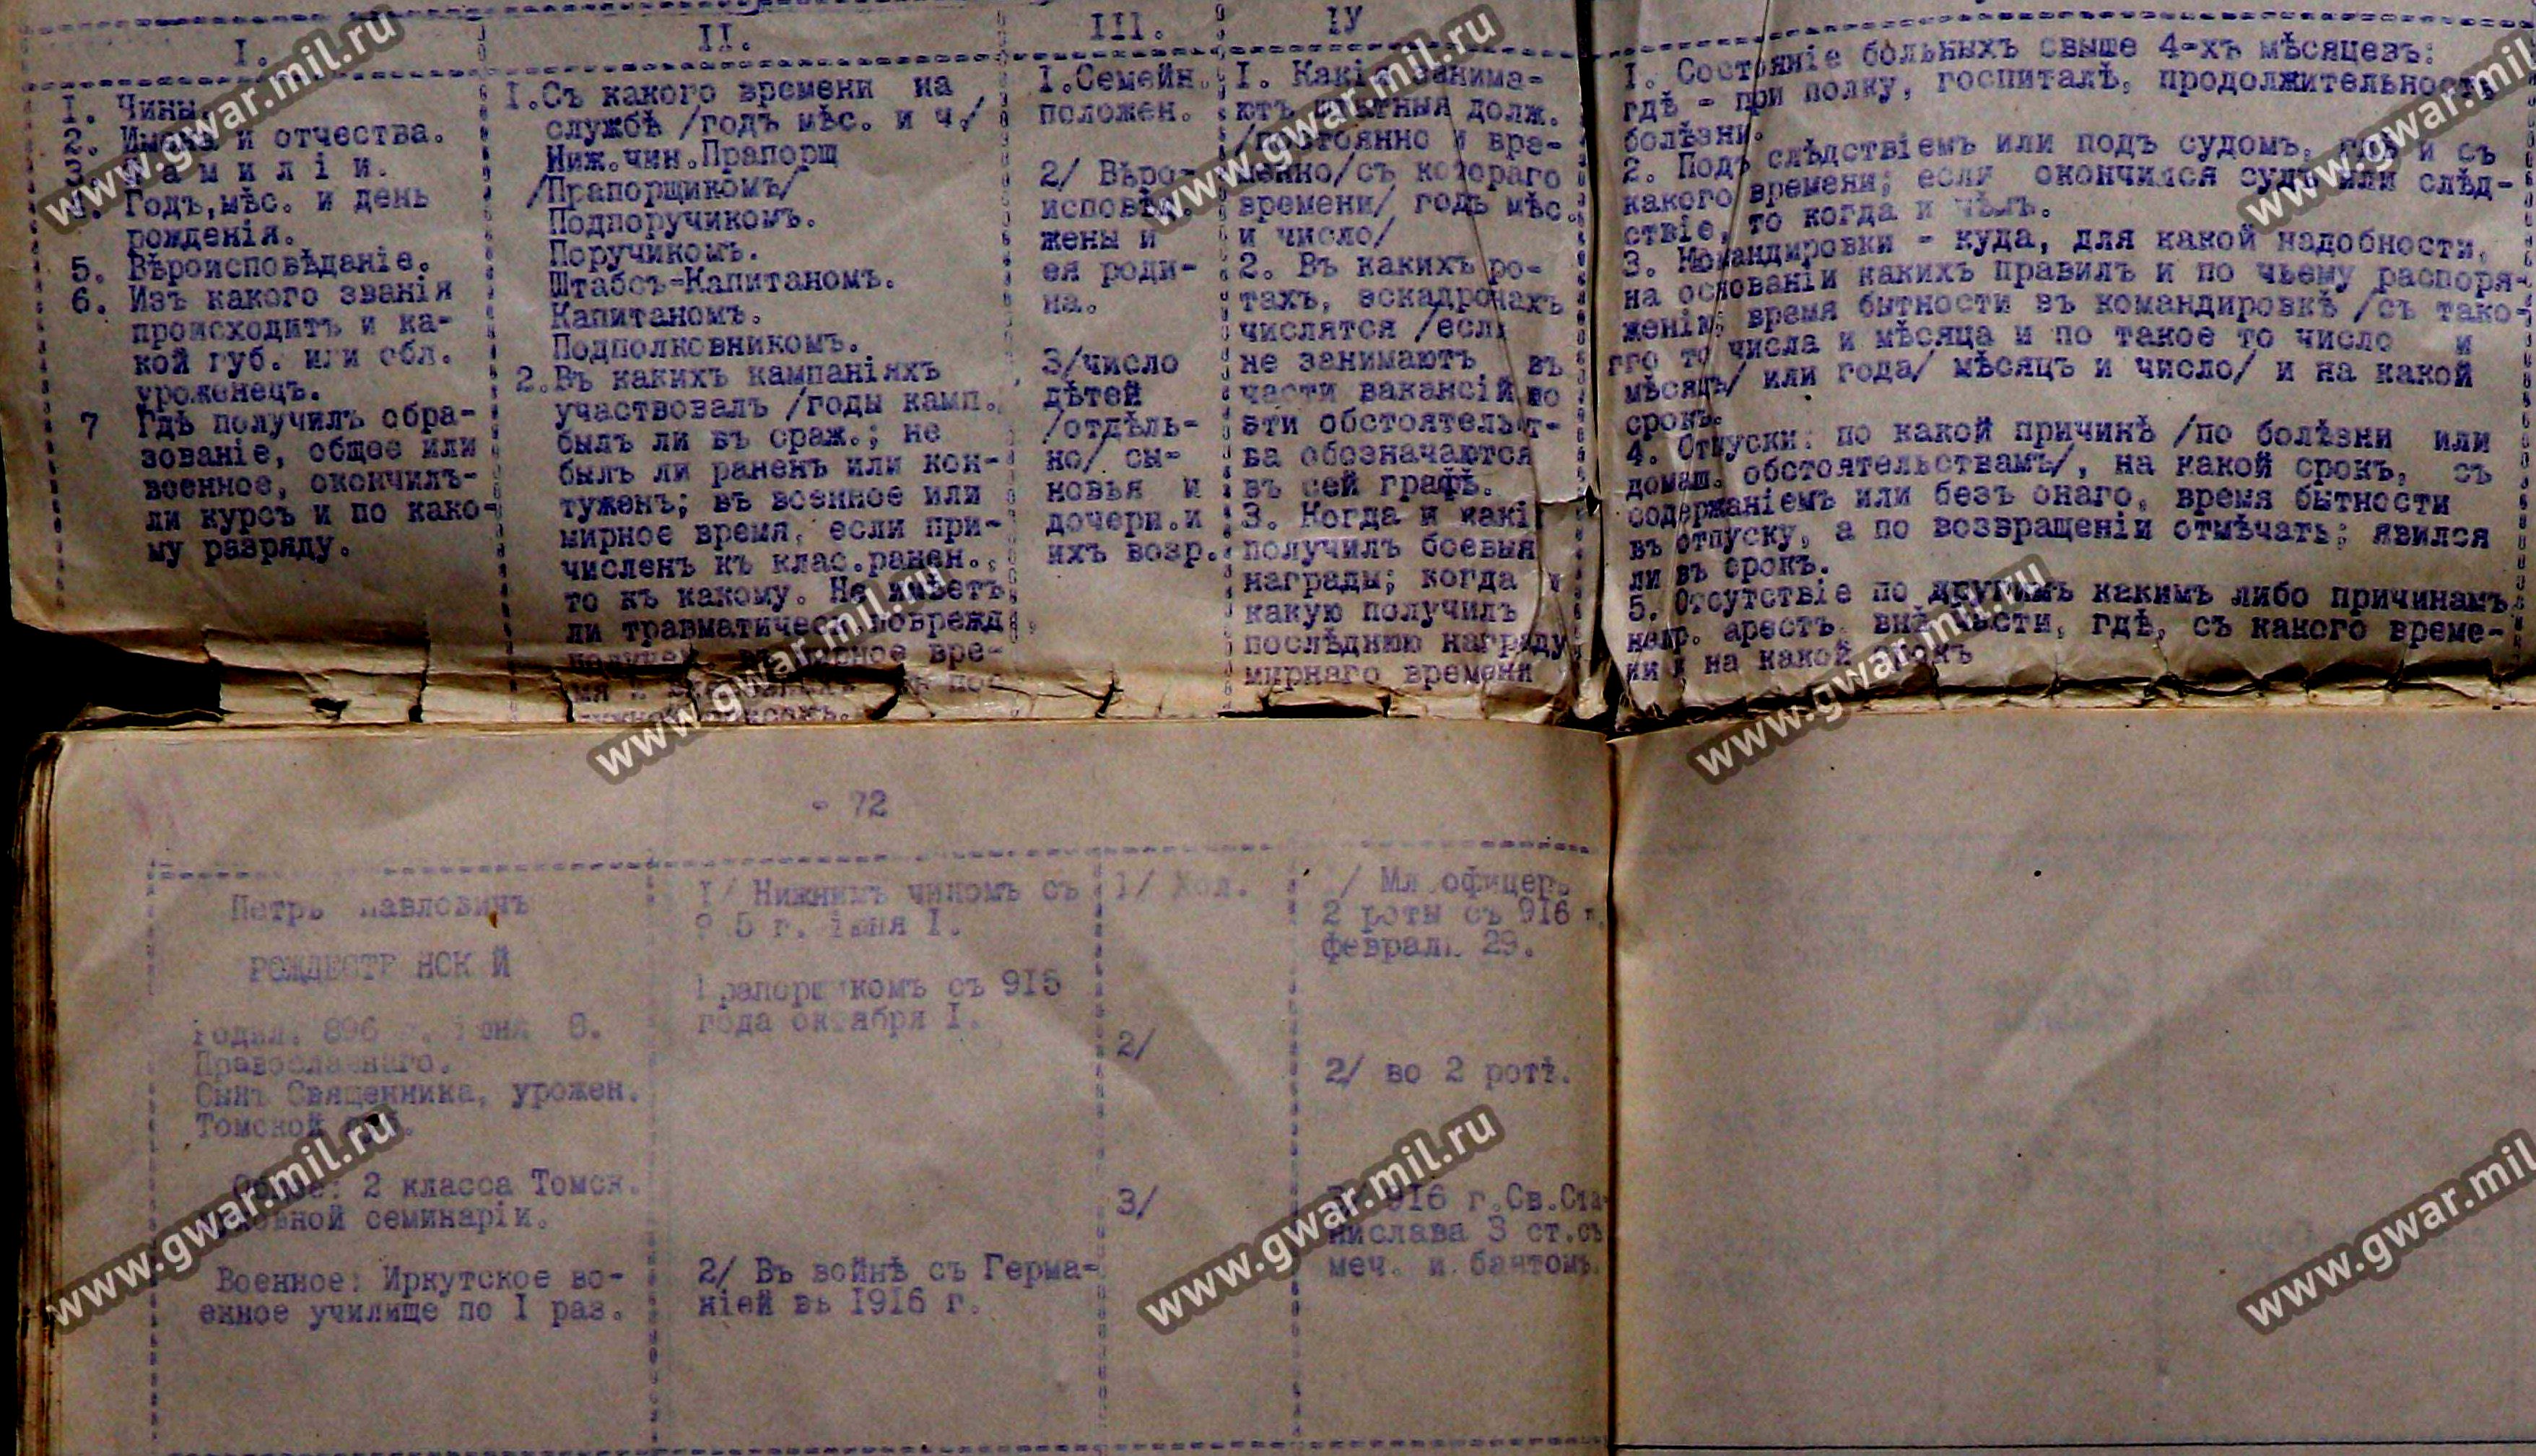 I.
I. Чины.
2. Имена и отчества.
3. Фамиліи.
Годъ, мѣс. и день
рожденія.
5. Вѣроисповѣданіе.
6. Изъ какого званія
происходитъ и ка-
кой губ. или обл.
уроженецъ.
7 Гдѣ получилъ обра-
зованіе, общее или
военное, окончилъ-
ли курсъ и по како-
му разряду.
II.
I. Съ какого времени на
службѣ /годъ мѣс. и ч./
Ниж.чин.Прапорщ
/Прапорщикомъ/
Подпоручикомъ.
Поручикомъ.
Штабсъ-Капитаномъ.
Капитаномъ.
Подполковникомъ.
2. Въ какихъ кампаніяхъ
участвовалъ /годы камп.
былъ ли въ сраж.; не
былъ ли раненъ или кон-
туженъ; въ военное или
мирное время, если при-
численъ къ клас.ранен.,
то къ какому. Не имѣетъ
ли травматичес. поврежд.
вре-
III.
I.Семейн.
положен.
2/ Вѣро-
исповѣд.
жены и
ея роди-
на.
3/число
дѣтей
/отдѣль-
но/ сы-
новья и
дочери.и
ихъ возр.
IУ
I. Какія занима-
ютъ штатныя долж.
/постоянно и вре-
менно/съ котораго
времени/ годъ мѣс.
и число/
2. Въ какихъ ро-
тахъ, эскадронахъ
числятся /если
не занимаютъ въ
части вакансій то
эти обстоятельст-
ва обозначаются
въ сей графѣ.
3. Когда и какія
получилъ боевыя
награды; когда и
какую получилъ
послѣднюю награду
мирнаго времени
I. Состояніе больныхъ свыше 4-хъ мѣсяцевъ:
гдѣ - при полку, госпиталѣ, продолжительность
болѣзни.
2. Подъ слѣдствіемъ или подъ судомъ, гдѣ и съ
какого времени; если окончился судъ или слѣд-
ствіе, то когда и чѣмъ.
3. Командировки - куда, для какой надобности,
на основаніи какихъ правилъ и по чьему распоря-
женію; время бытности въ командировкѣ /съ тако-
гго то числа и мѣсяца и по такое то число и
мѣсяцъ/ или года/ мѣсяцъ и число/ и на какой
срокъ.
4. Отпуски: по какой причинѣ /по болѣзни или
домаш. обстоятельствамъ/, на какой срокъ, съ
содержаніемъ или безъ онаго, время бытности
въ отпуску, а по возвращеніи отмѣчать; явился
ли въ срокъ.
5. Отсутствіе по другимъ какимъ либо причинамъ
напр. арестъ внѣ части, гдѣ, съ какого време-
ни и на какой срокъ
- 72
Петръ Павловичъ
РОЖДЕСТВЕНСКІЙ
Родил. 896 г. іюня 6.
Православнаго.
Сынъ Священника, урожен.
Томской губ.
Общее: 2 класса Томск.
духовной семинаріи.
Военное: Иркутское во-
енное училище по I раз.
I/ Нижнимъ чиномъ съ
9 5 г. іюня I.
Прапорщикомъ съ 915
года октября I.
2/ Въ войнѣ съ Герма-
ніей въ I9I6 г.
1/ Хол.
2/
3/
/ Мл.офицеръ
2 роты съ 9I6 г.
февраля 29.
2/ во 2 ротѣ.
3/ 9I6 г.Св.Ста-
нислава 3 ст.съ
меч. и бантомъ.
www.gwar.mil.ru
www.gwar.mil.ru
www.gwar.mil
www.gwar.mil.ru
www.gwar.mil.ru
www.gwar.mil.ru
www.gwar.mil.ru
www.gwar.mil